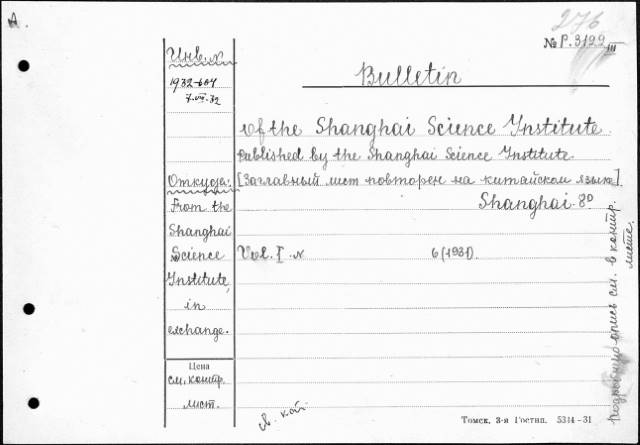 А.
276
№ Р.3122 III
Инв. №
1932-604
7.VIII.32
Bulletin
of the Shanghai Science Institute
published by the Shanghai Science Institute
Откуда:
[Заглавный лист повторен на китайском языке].
Shanghai 8°
From the
Shanghai
Science
Institute,
in
exchange.
Vol. I. N 6 (1931).
Цена
см. контр.
лист.
Подробную опись см. в контр.
листе.
Томск, 3-я Гостип. 5344-31